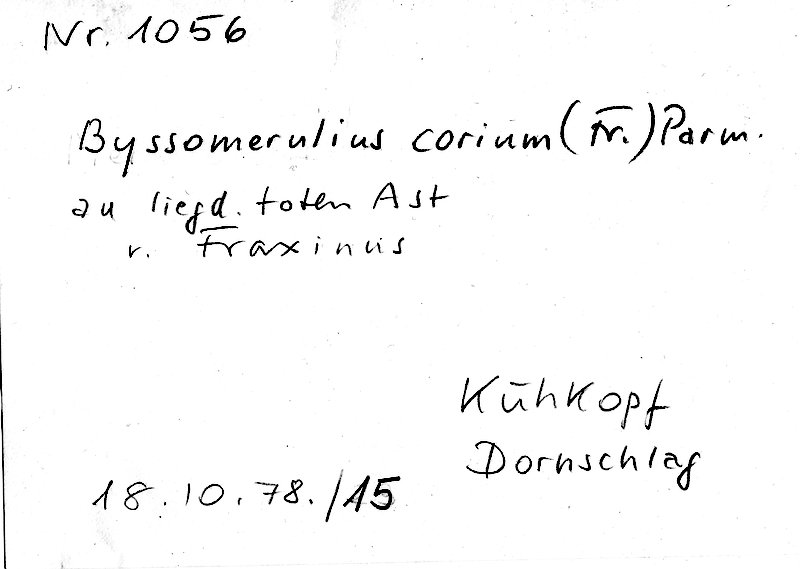 Nr. 1056
Byssomerulius corium (Fr.) Parm.
an liegd. toten Ast
v. Fraxinus
Kühkopf
Dornschlag
18.10.78./15